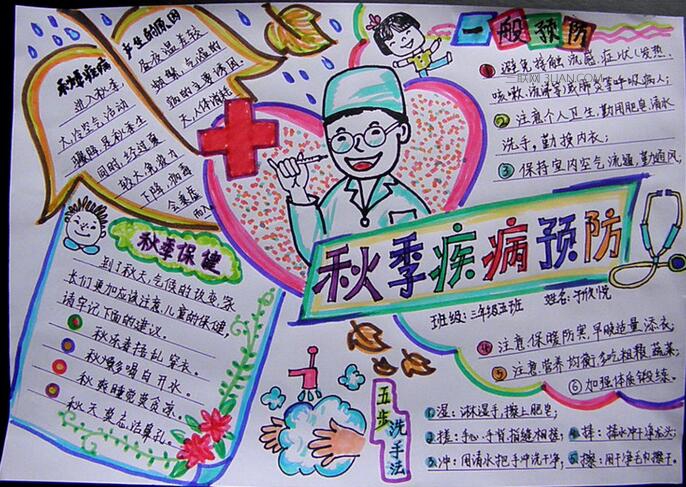 秋季疾病
产生的原因
进入秋季,
大冷空气活动
同时,经过夏
下降,病毒
昼夜温差较
频繁,气温的
病的主要诱因。
天,人体消耗
一般预防
①避免接触流感症状(发热、
咳嗽、流涕等)或肺炎等呼吸病人;
三联网 3LIAN.COM
②注意个人卫生,勤用肥皂清水
洗手,勤换内衣;
③保持室内空气流通,勤通风;
秋季疾病预防
班级:三年级五班 姓名:于欣悦
④注意保暖防寒,早晚适量添衣;
⑤注意营养均衡,多吃粗粮蔬菜;
⑥加强体质锻练。
秋季保健
到了秋天,气候的改变,家
长们更加应该注意儿童的保健,
请牢记下面的建议。
秋冻幸语乱穿衣。
秋燥多喝白开水。
秋爽睡觉莫贪凉。
秋天莫忘洁鼻孔。
五步
洗手法
1湿:淋湿手,擦上肥皂。
2搓:手心、手背、指缝相搓。
3冲:用清水把手冲洗干净。
4捧:捧水冲干净龙头。
5擦:用干净毛巾擦干。